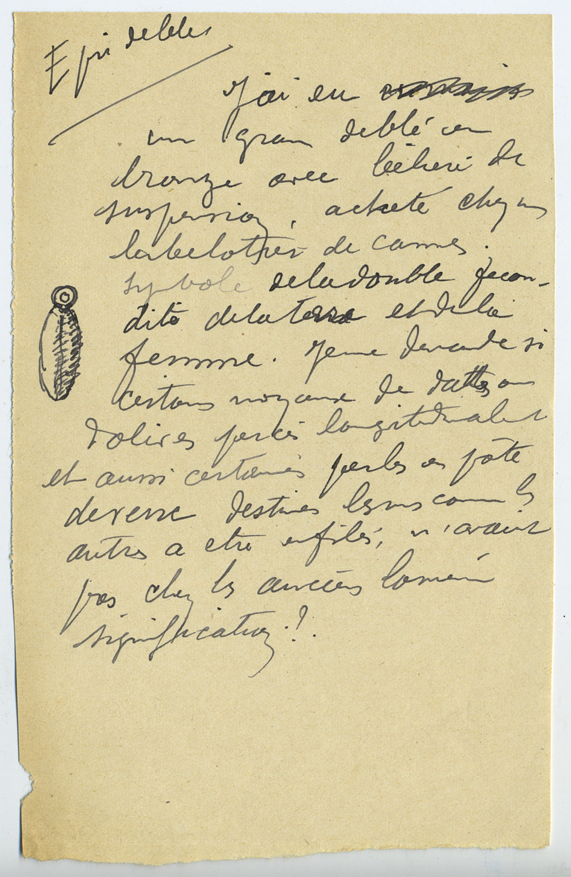 Epi de blé
J'ai eu
un grain de blé en
bronze avec bélière de
suspension, acheté chez un
de cannes.
symbole de la double fécon-
dité de la terre et de la
femme. Je me demande si
certains noyaux de dattes ou
d'olives percés longitudinalemt
et aussi certaines perles en pâte
de verre destinés les uns comme les
autres a etre enfilés, n'avaient
pas chez les anciens la même
signification?!